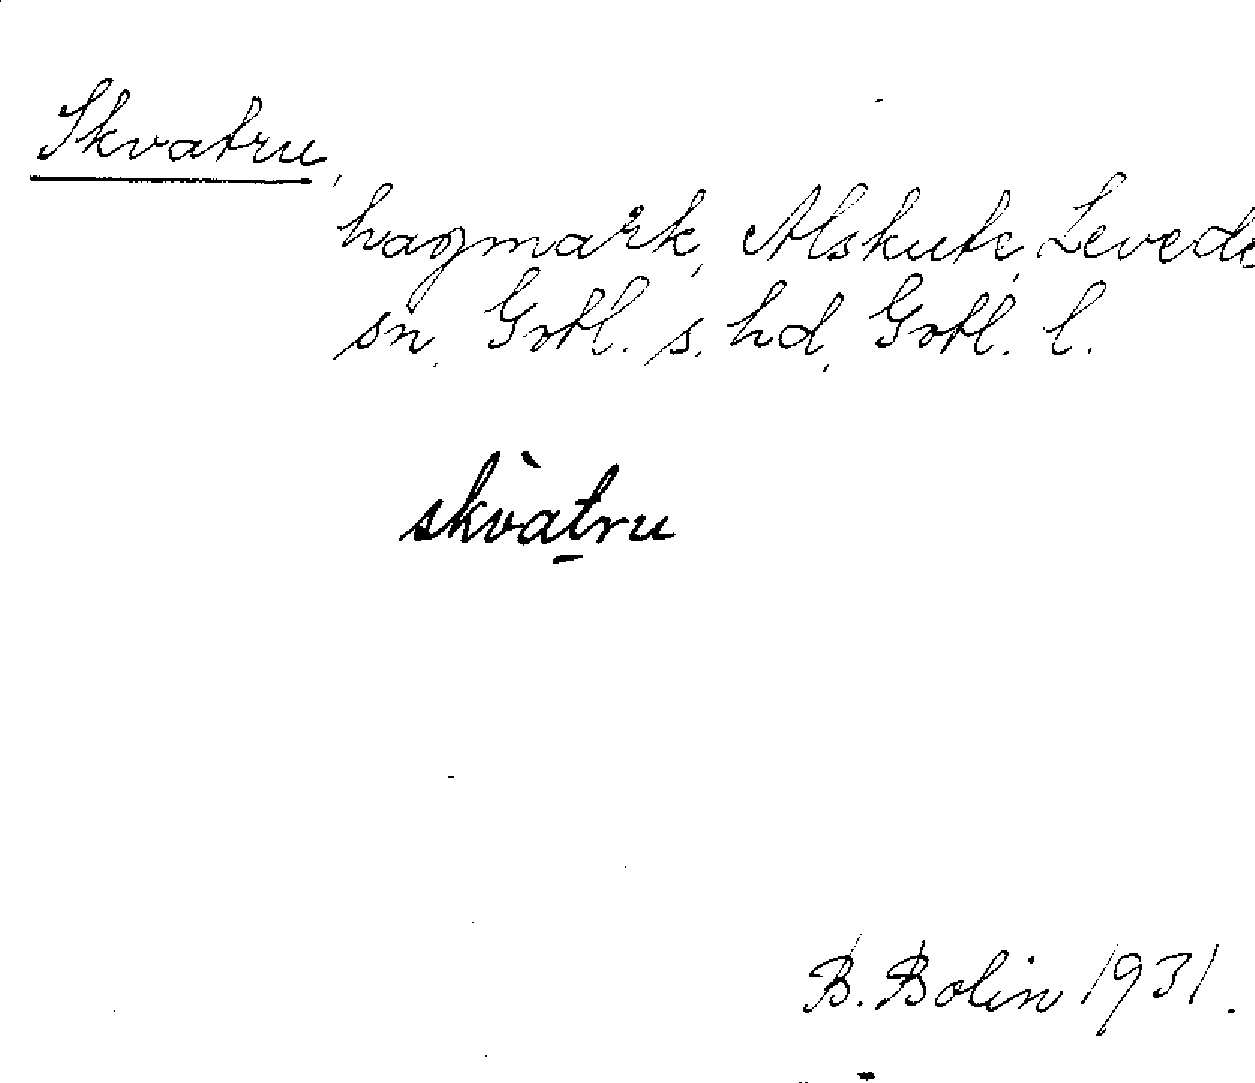 Skvatru,
hagmark, Alskute, Levede
sn, Gotl. s. hd, Gotl. l.
skvàt̠ru
B. Bolin 1931.